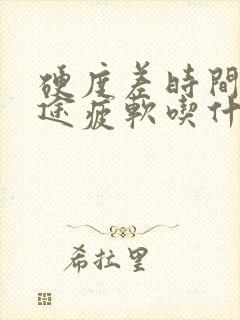 硬度差時間
途疲軟喫什
希拉里